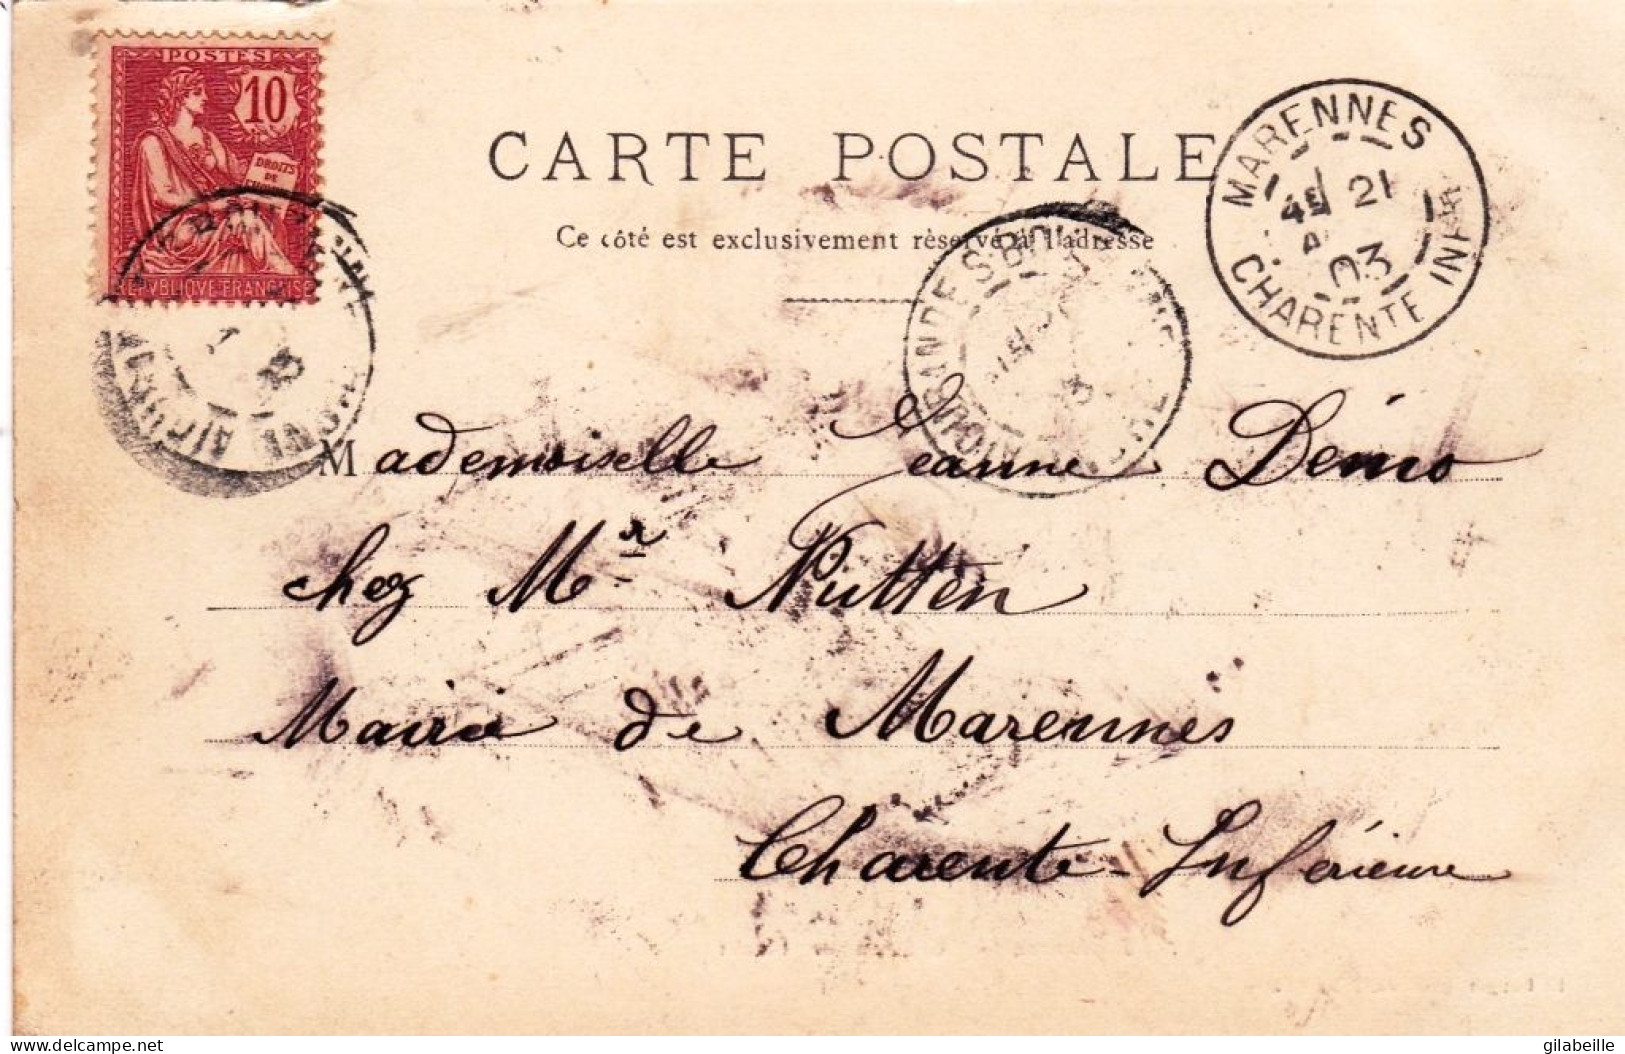 POSTES
10
DROITS
DE
REPVBLIQVE FRANÇAISE
CARTE POSTALE
Ce côté est exclusivement réservé à l'adresse
MARENNES
4E 21
03
CHARENTE INFRE
Mademoiselle Jeanne Denis
chez Mr Nutten
Mairie de Marennes
Charente-Inférieure
delcampe.net
gilabeille